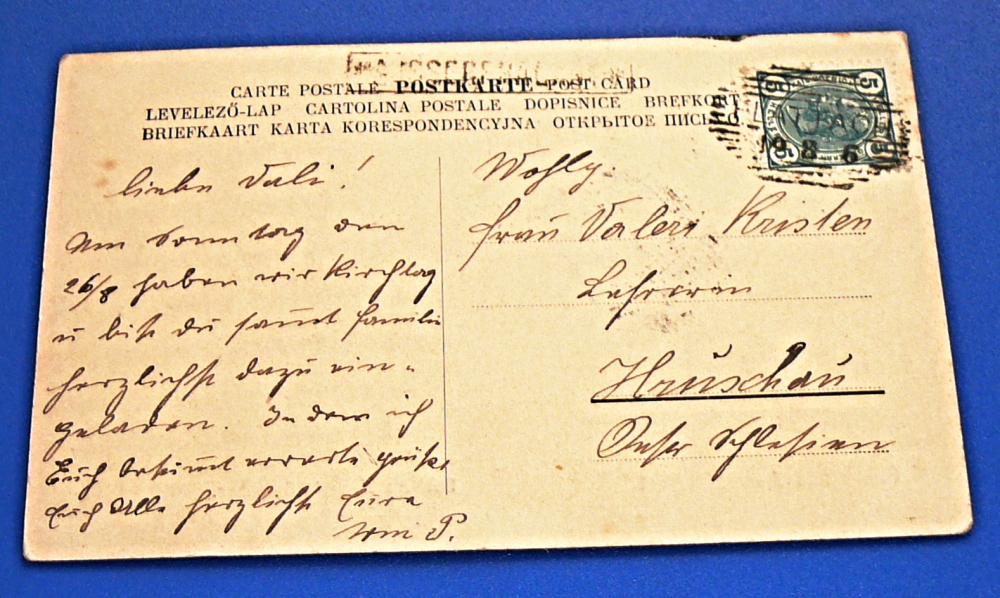 CARTE POSTALE POSTKARTE POST CARD
LEVELEZŐ-LAP CARTOLINA POSTALE DOPISNICE BREFKORT
BRIEFKAART KARTA KORESPONDENCYJNA ОТКРЫТОЕ ПИСЬ
5 5
5 5
8 6
liebe Vali!
Am Sonntag den
26/8 haben wir Kirchtag
u bist du samt familie
herzlichst dazu ein-
geladen. In dem ich
Euch bestimmt erwarte grüße
Euch Alle herzlichst Eure
P.
Wohlg.
Frau Valeri Kristen
Lehrerin
Hruschau
Oester Schlesien